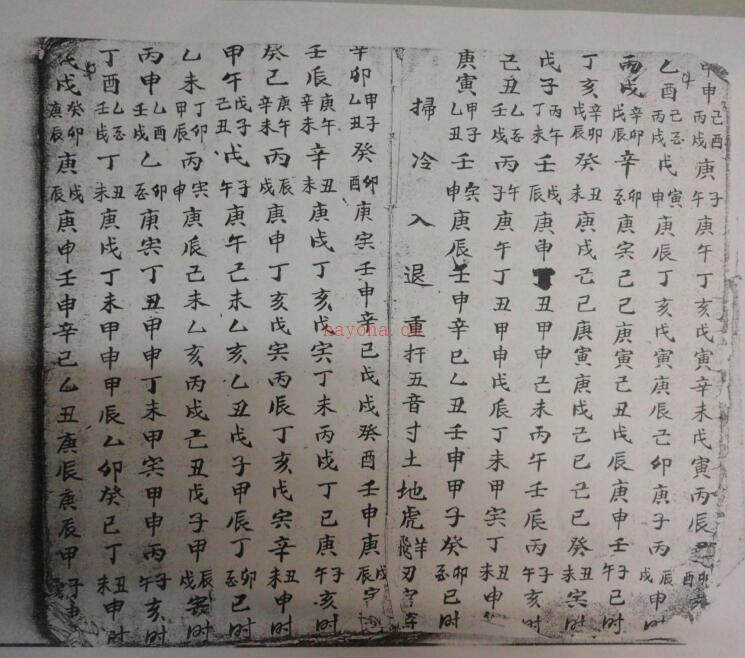 甲申己酉丙戌庚子午庚午丁亥戊寅辛未戊寅丙辰
乙酉己丙戌戊寅申庚辰丁亥戊寅庚辰己卯庚子丙辰戌申时
丙戌辛卯戊辰辛卯酉庚寅己巳庚寅己丑戊辰庚申壬子午巳时
丁亥辛卯戊辰癸丑未庚戌己巳庚寅庚戌己巳己巳癸丑未寅时
戊子丙午丁未壬戌辰庚申丁丑甲申己未丙午壬辰丙子午亥时
己丑乙丑壬戌丙午子庚午丁丑甲申戊辰丁未甲寅丁丑未申时
庚寅甲子乙丑壬寅申庚辰壬申辛巳乙丑壬申甲子癸卯酉巳时
掃冷入退重扦五音寸土地虎羊飛刃
辛卯甲子乙丑癸卯酉庚寅壬申辛巳戊戌癸酉壬申庚戌辰
壬辰庚午辛未辛丑未庚戌丁亥戊寅丁未丙戌丁巳庚子午亥时
癸巳庚午辛未丙辰戌庚申丁亥戊寅丙辰丁亥戊寅辛丑未申时
甲午戊子己丑戊子午庚午己未乙亥乙丑戊子甲辰丁卯酉巳时
乙未丁卯甲辰丙寅申庚辰己未乙亥丙戌己丑戊子甲辰戌寅时
丙申乙酉壬戌乙卯酉庚寅丁丑甲申丁未甲寅甲申丙子午亥时
丁酉乙丑壬戌丁丑未庚戌丁未甲申甲辰乙卯癸巳丁丑未申时
戊戌癸卯庚辰庚戌辰庚申壬申辛巳乙丑庚辰庚辰甲子时